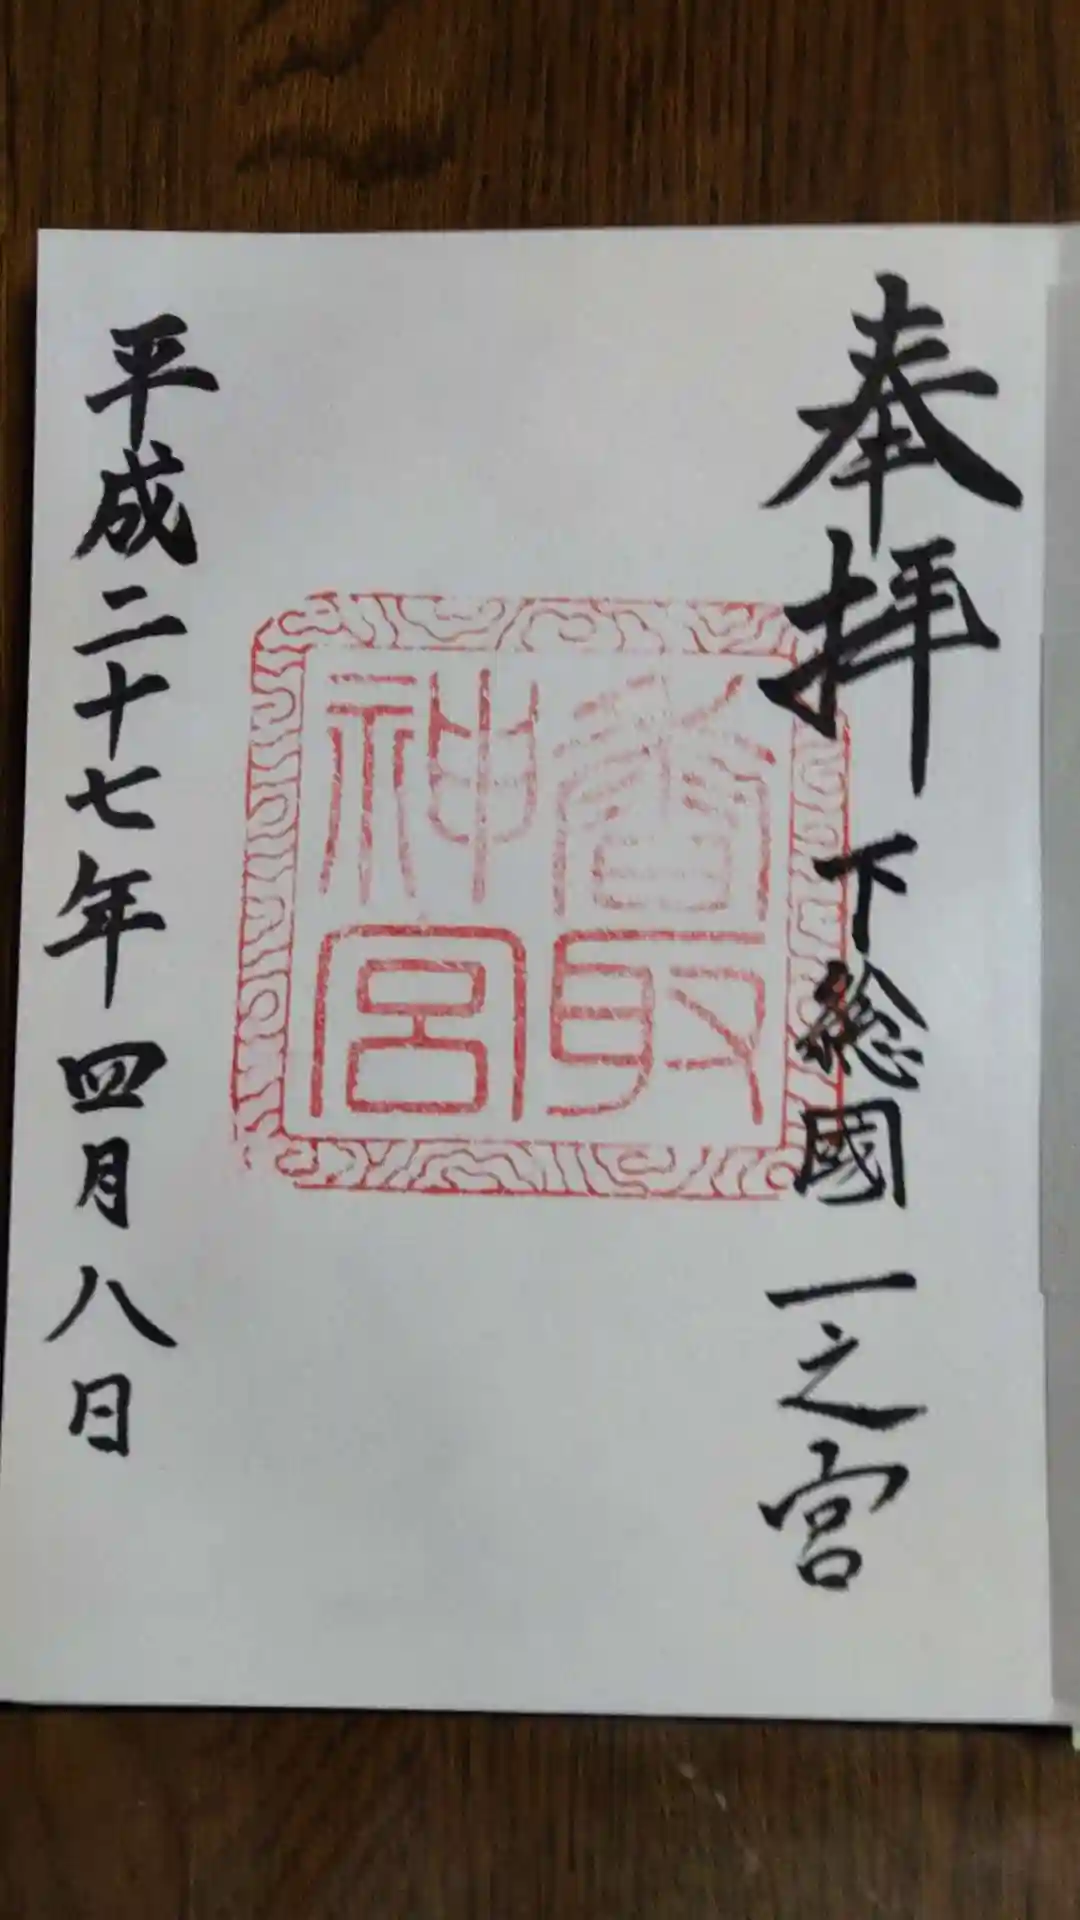 奉拝 下総國 一之宮
香取
神宮
平成二十七年 四月 八日